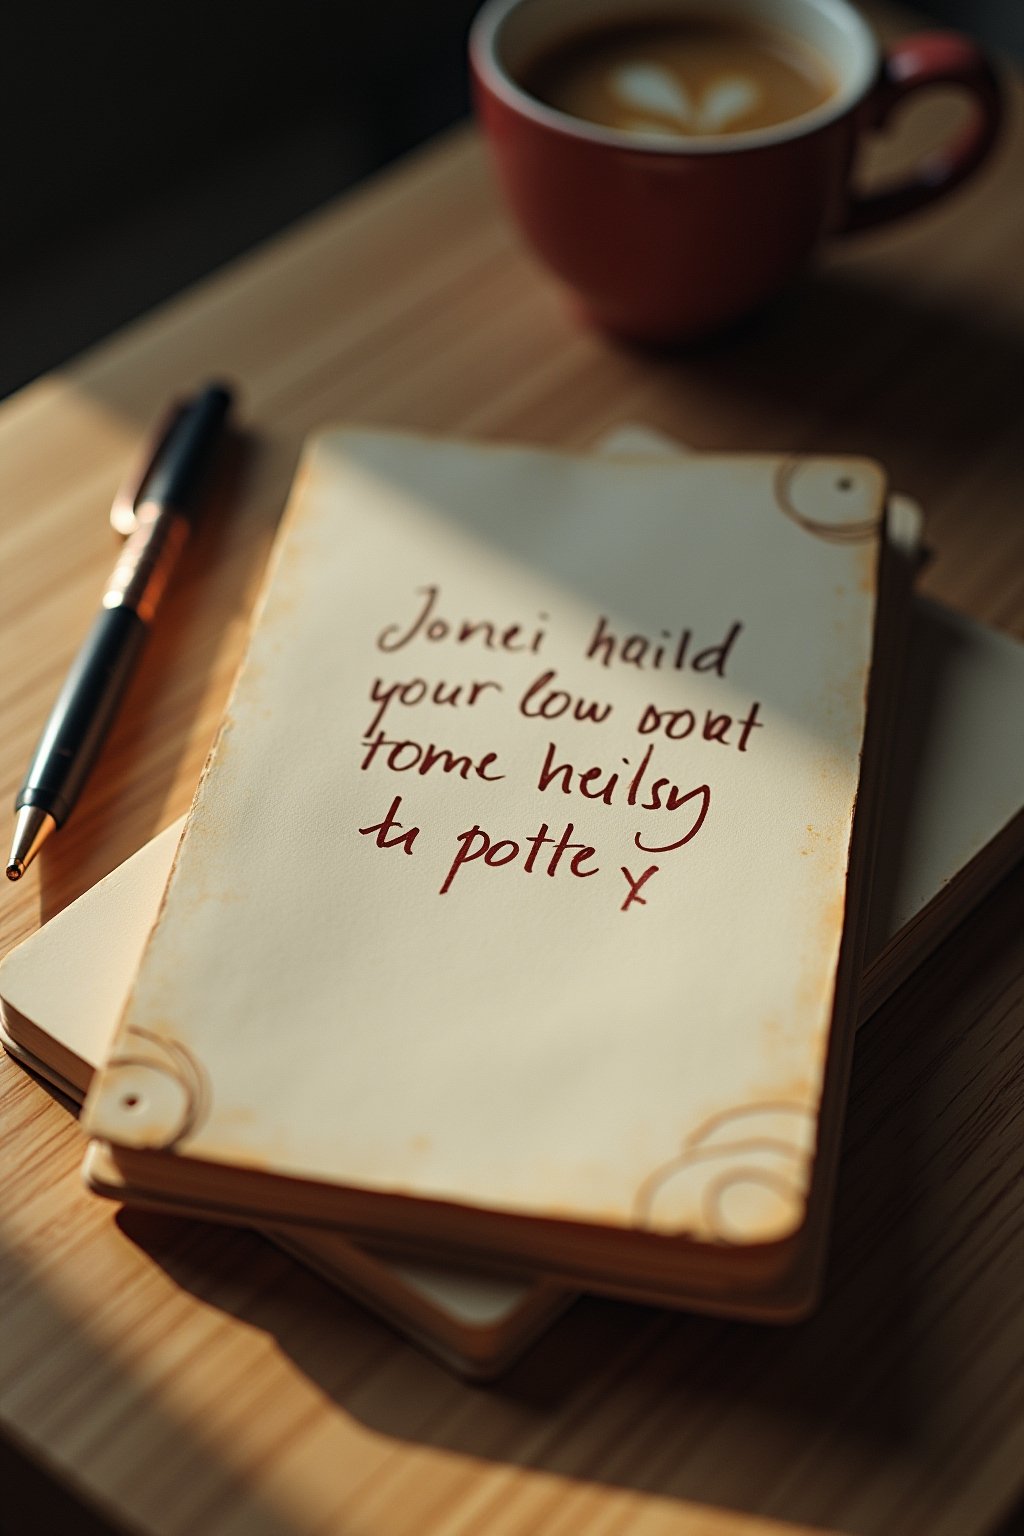 Jonei haild
your low
tome heilsy
potte x